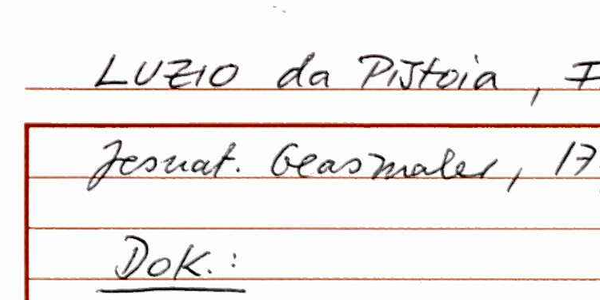 LUZIO da PiStoia, F
Jesuat. Glasmaler, 17
Dok.: